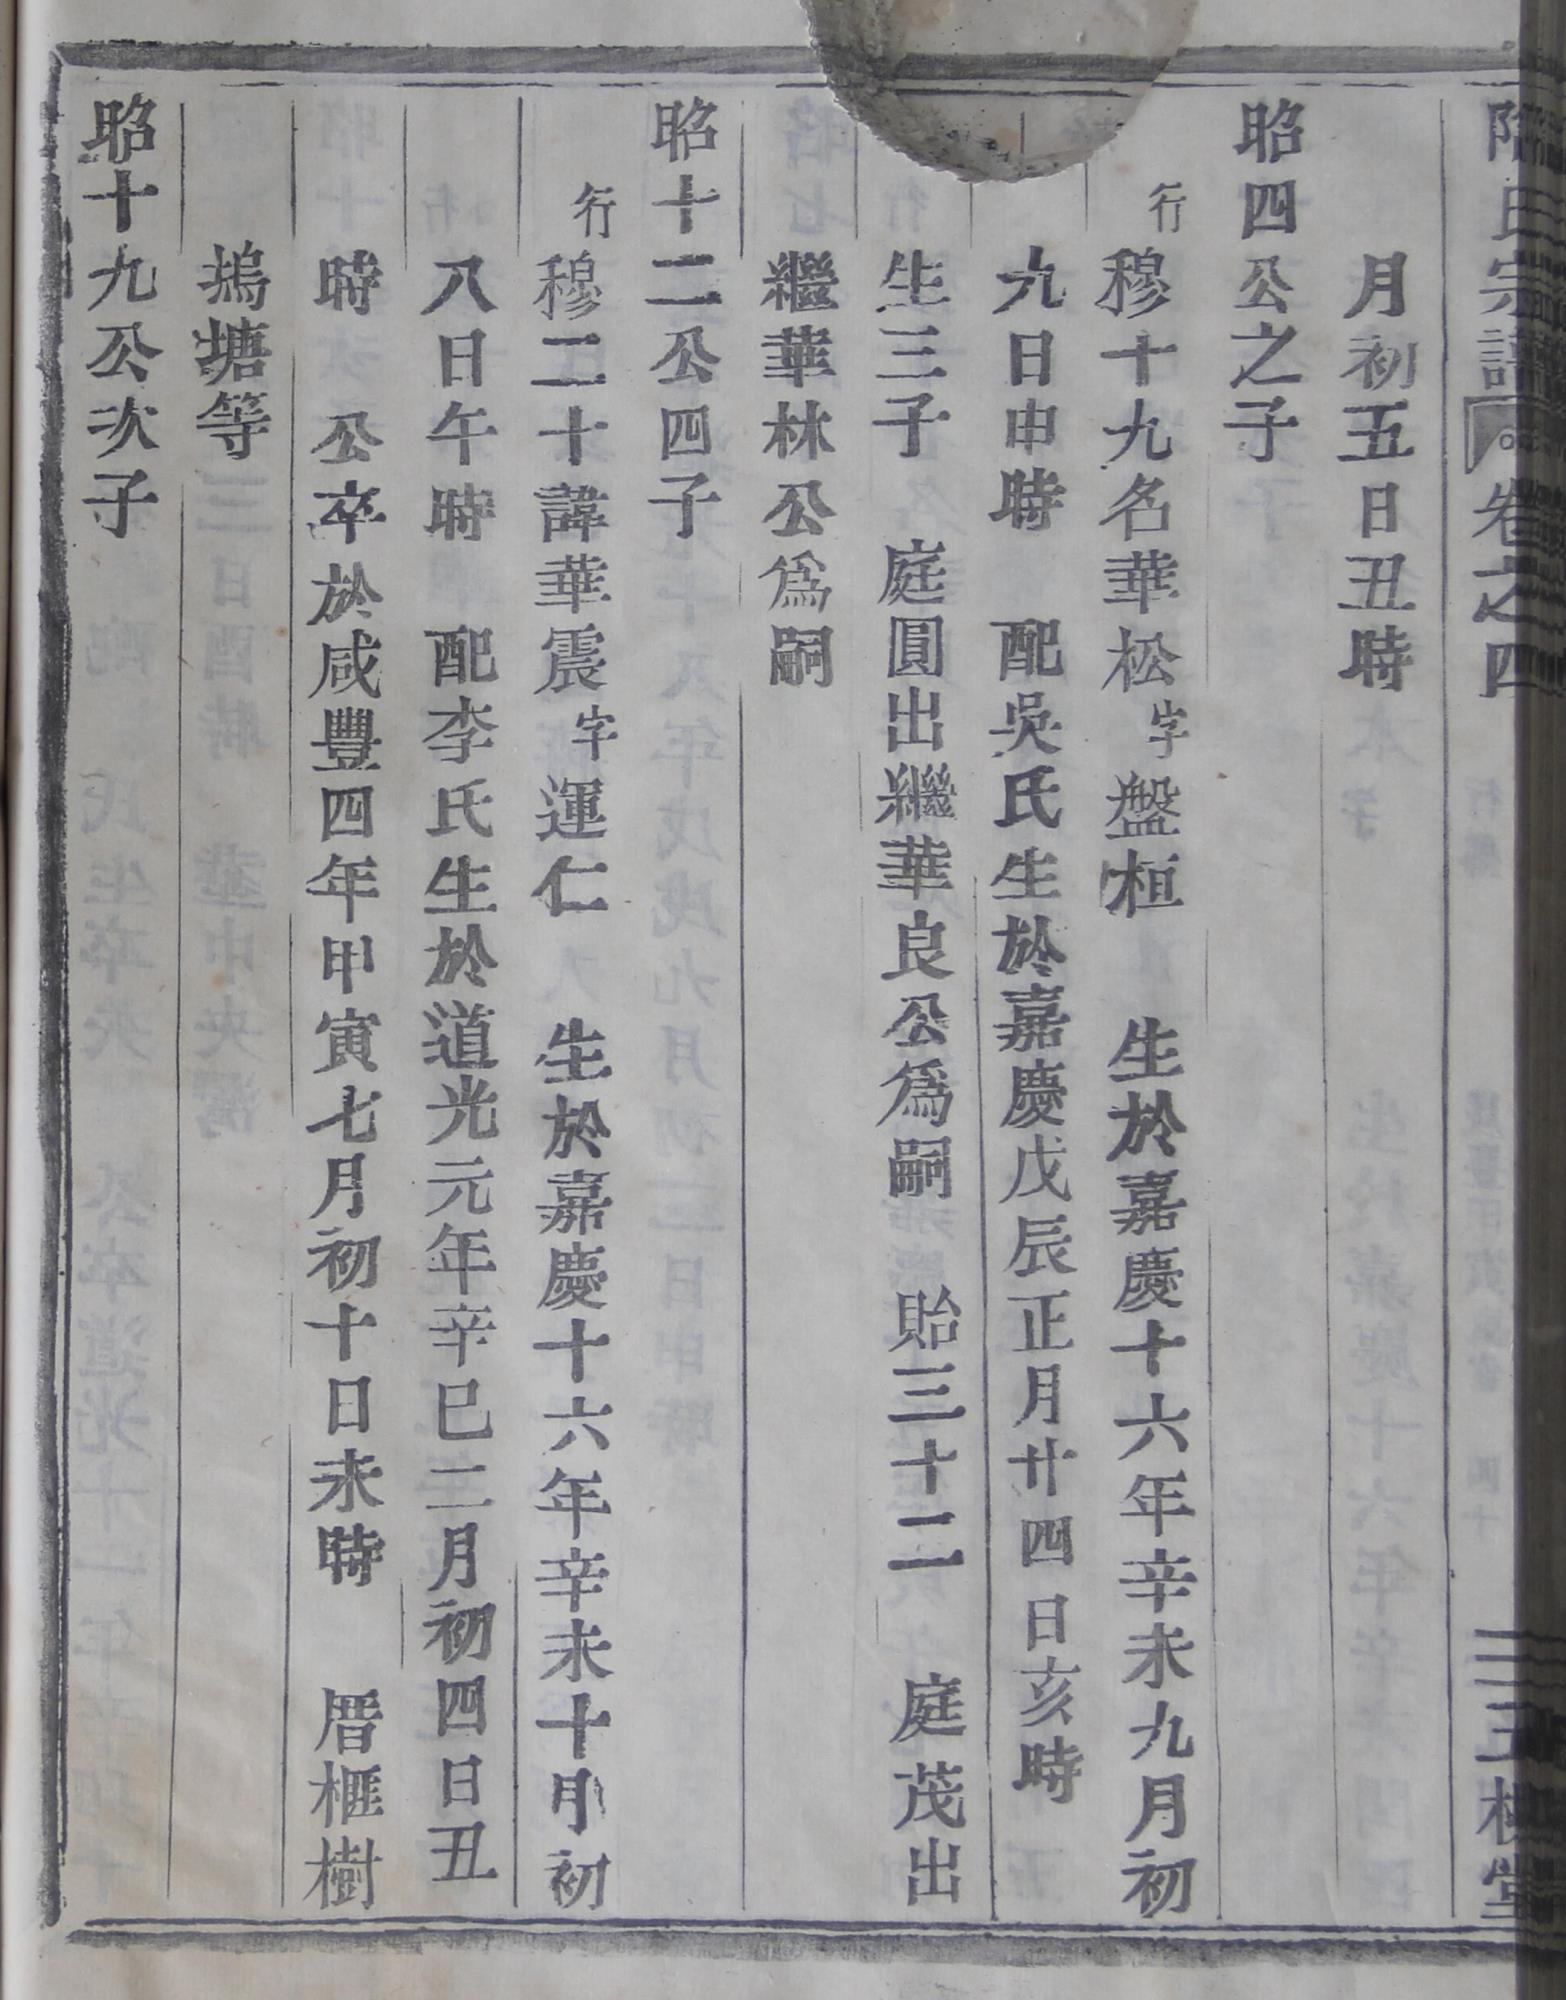 氏宗譜 卷之四 三槐堂
月初五日丑時
昭四公之子
行穆十九名華松字盤桓 生於嘉慶十六年辛未九月初
九日申時 配吳氏生於嘉慶戊辰正月廿四日亥時
生三子 庭圓出繼華良公爲嗣 貽三十二 庭茂出
繼華林公爲嗣
昭十二公四子
行穆二十諱華震字運仁 生於嘉慶十六年辛未十月初
八日午時 配李氏生於道光元年辛巳二月初四日丑
時 公卒於咸豐四年甲寅七月初十日未時 厝榧樹
塢塘等
昭十九公次子